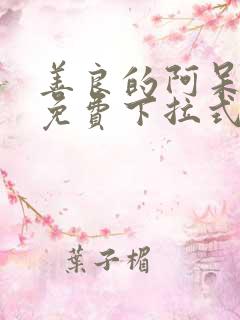 善良的阿呆
免費下拉式
葉子楣